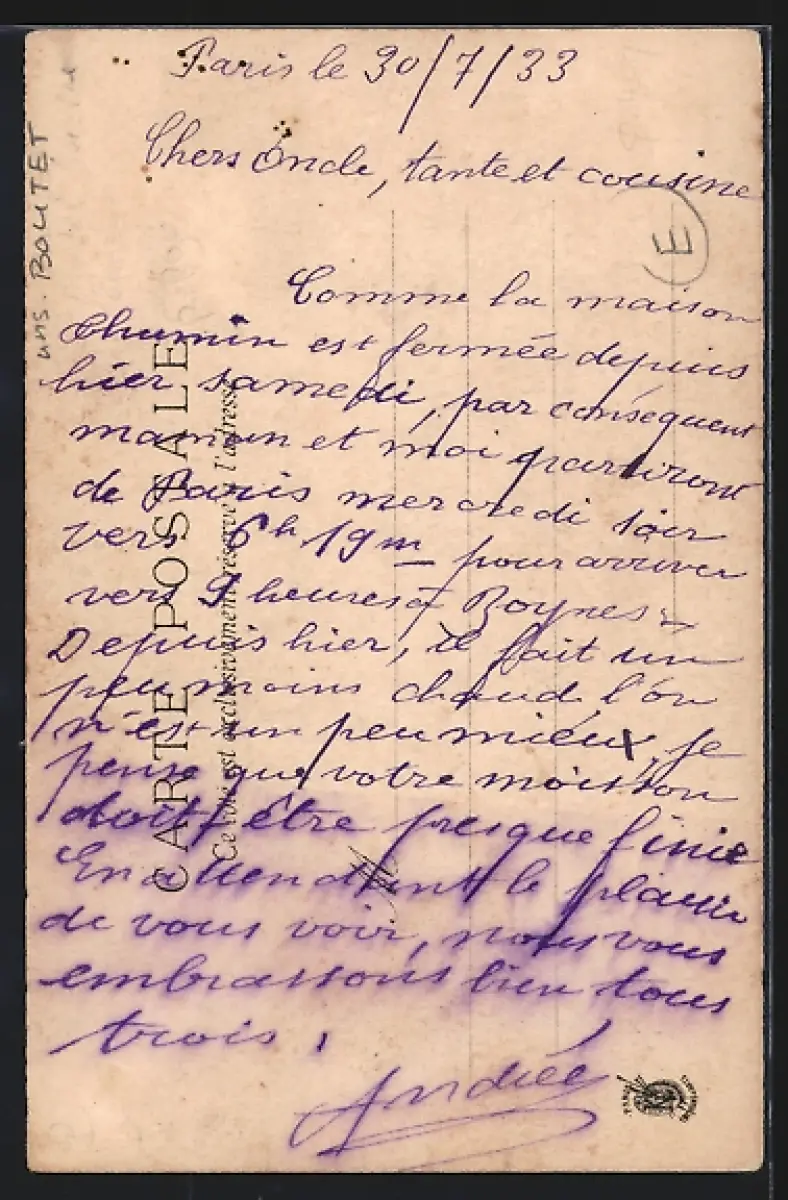 Paris le 30/7/33
Chers Oncle, tante et cousine
Comme la maison
Chumin est fermée depuis
hier samedi, par conséquent
maman et moi partiront
de Paris mercredi soir
vers 6h 19m pour arriver
vers 9 heures à Boynes
Depuis hier, il fait un
peu moins chaud, l'on
n'est un peu mieux, je
pense que votre moisson
doit être presque finie
En attendant le plaisir
de vous voir, nous vous
embrassons bien tous
trois,
Andrée
ans. BOUTET
E
CARTE POSTALE
Ce côté est exclusivement réservé à l'adresse
M